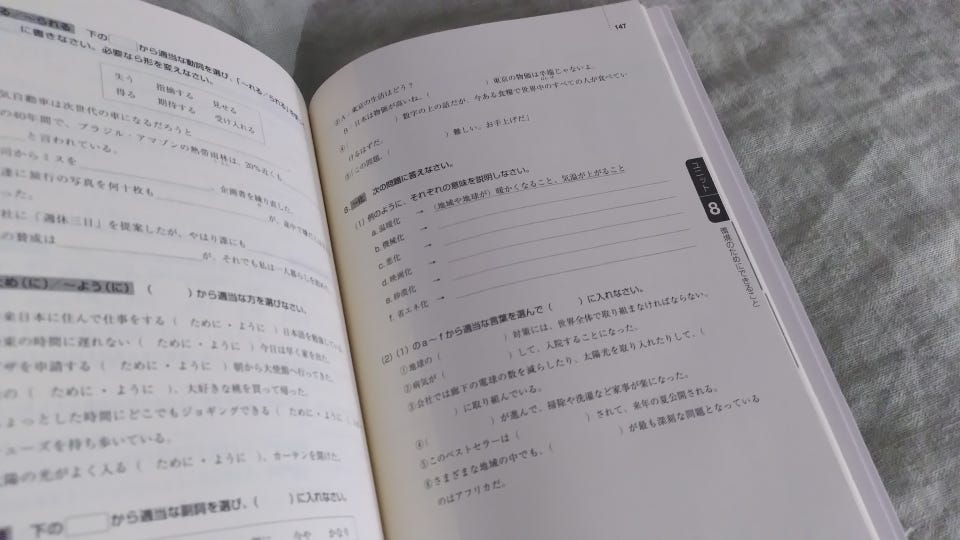 る／～られる 下の から適当な動詞を選び、「～れる／られる」を
に書きなさい。必要なら形を変えなさい。
失う 指摘する 見せる
得る 期待する 受け入れる
気自動車は次世代の車になるだろうと
の40年間で、ブラジル・アマゾンの熱帯雨林は、20％近くも
と言われている。
司からミスを 、企画書を練り直した。
達に旅行の写真を何十枚も が、途中で
った。
社に「週休三日」を提案したが、やはり誰にも
の賛成は が、それでも私は一人暮らしを
ため（に）／～よう（に） （ ）から適当な方を選びなさい。
来日本に住んで仕事をする（ ために・ように ）日本語を勉強している。
東の時間に遅れない（ ために・ように ）今日は早く家を出た。
ザを申請する（ ために・ように ）朝から大使館へ行ってきた。
の（ ために・ように ）、大好きな桃を買って帰った。
ょっとした時間にどこでもジョギングできる（ ために・ように ）、
ューズを持ち歩いている。
陽の光がよく入る（ ために・ように ）、カーテンを開けた。
下の から適当な副詞を選び、（ ）に入れなさい。
今や かなり
147
②A 東京の生活はどう？
B 日本は物価が高いね。（ ）東京の物価は半端じゃないよ。
④（ ）数字の上の話だが、今ある食糧で世界中のすべての人が食べてい
けるはずだ。
⑤「この問題、（ ）難しい。お手上げだ」
8. ～化 次の問題に答えなさい。
(1) 例のように、それぞれの意味を説明しなさい。
a. 温暖化 → （地域や地球が）暖かくなること、気温が上がること
b. 機械化 →
c. 悪化 →
d. 映画化 →
e. 砂漠化 →
f. 省エネ化 →
(2) (1) のa～fから適当な言葉を選んで（ ）に入れなさい。
①地球の（ ）対策には、世界全体で取り組まなければならない。
②病気が（ ）して、入院することになった。
③会社では廊下の電球の数を減らしたり、太陽光を取り入れたりして、（
）に取り組んでいる。
④（ ）が進んで、掃除や洗濯など家事が楽になった。
⑤このベストセラーは（ ）されて、来年の夏公開される。
⑥さまざまな地域の中でも、（ ）が最も深刻な問題となっている
のはアフリカだ。
ユニット 8 環境のためにできること